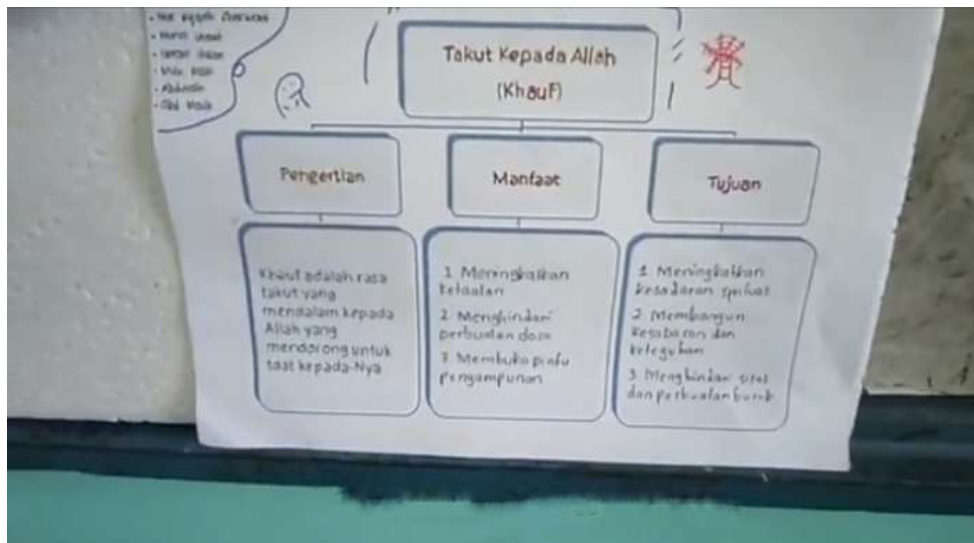 Takut Kepada Allah
(Khauf)
Pengertian
Manfaat
Tujuan
Khauf adalah rasa
takut yang
mendalam kepada
Allah yang
mendorong untuk
taat kepada-Nya
1 Meningkatkan
ketaatan
2. Menghindari
perbuatan dosa
3 Membuka pintu
pengampunan
1 Meningkatkan
kesadaran
2 Membangun
kesabaran dan
keteguhan
3 Menghindari sifat
dan perbuatan